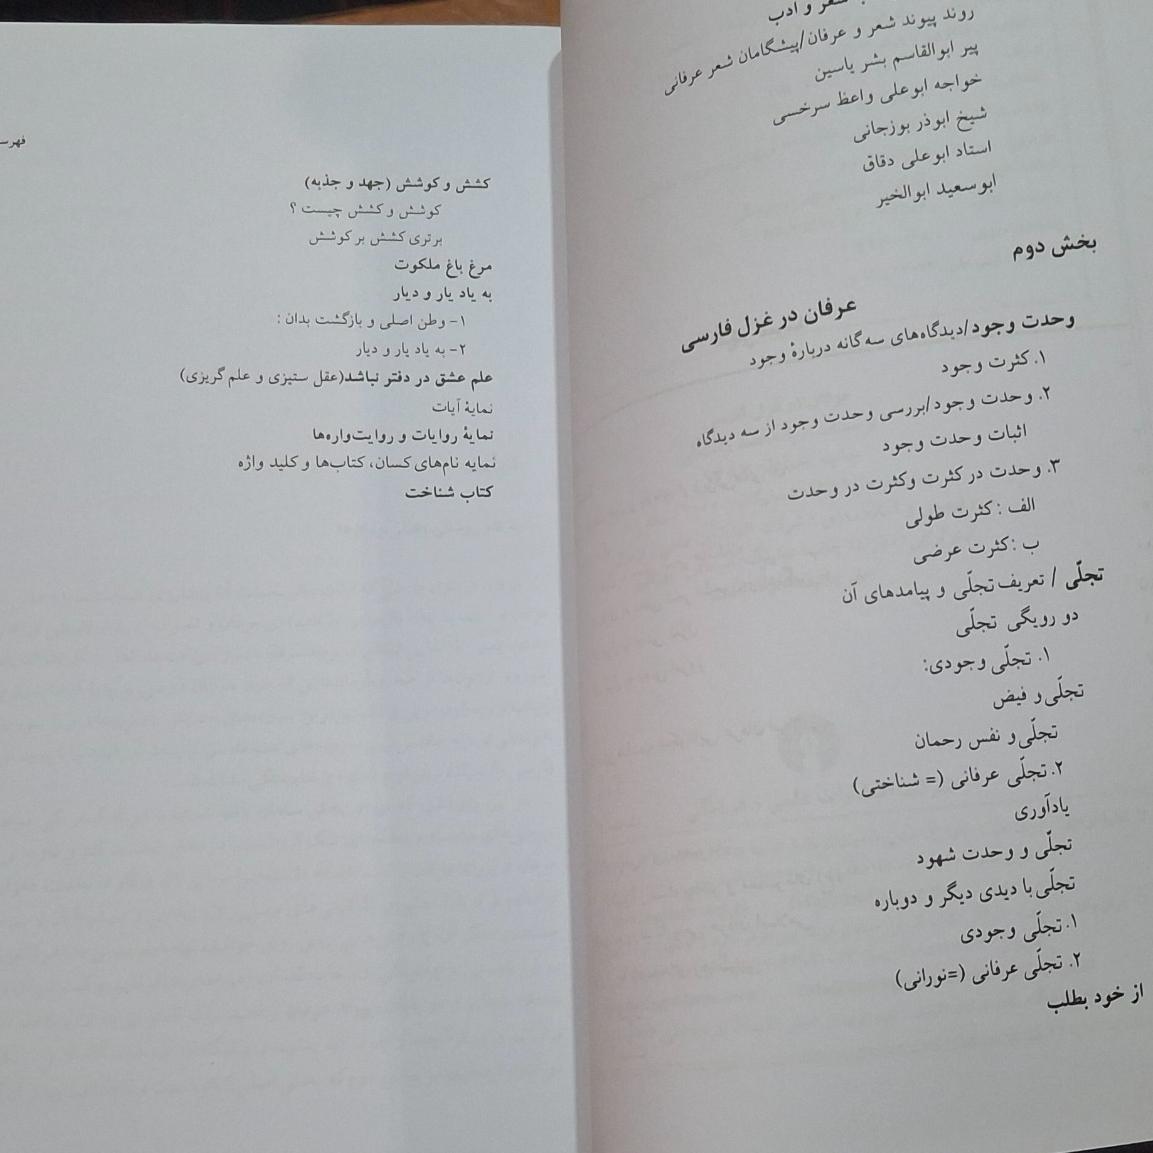 شعر و ادب
روند پیوند شعر و عرفان/پیشگامان شعر عرفانی
پیر ابوالقاسم بشر یاسین
خواجه ابوعلی واعظ سرخسی
شیخ ابوذر بوزجانی
استاد ابوعلی دقاق
ابوسعید ابوالخیر
بخش دوم
عرفان در غزل فارسی
وحدت وجود/دیدگاه‌های سه‌گانه دربارهٔ وجود
۱. کثرت وجود
۲. وحدت وجود/بررسی وحدت وجود از سه دیدگاه
اثبات وحدت وجود
۳. وحدت در کثرت وکثرت در وحدت
الف : کثرت طولی
ب : کثرت عرضی
تجلّی / تعریف تجلّی و پیامدهای آن
دو رویگی تجلّی
۱. تجلّی وجودی:
تجلّی و فیض
تجلّی و نفس رحمان
۲. تجلّی عرفانی (= شناختی)
یادآوری
تجلّی و وحدت شهود
تجلّی با دیدی دیگر و دوباره
۱. تجلّی وجودی
۲. تجلّی عرفانی (=نورانی)
از خود بطلب
کشش و کوشش (جهد و جذبه)
کوشش و کشش چیست ؟
برتری کشش بر کوشش
مرغ باغ ملکوت
به یاد یار و دیار
۱- وطن اصلی و بازگشت بدان :
۲- به یاد یار و دیار
علم عشق در دفتر نباشد(عقل ستیزی و علم گریزی)
نمایهٔ آیات
نمایهٔ روایات و روایت‌واره‌ها
نمایه نام‌های کسان، کتاب‌ها و کلید واژه
کتاب شناخت